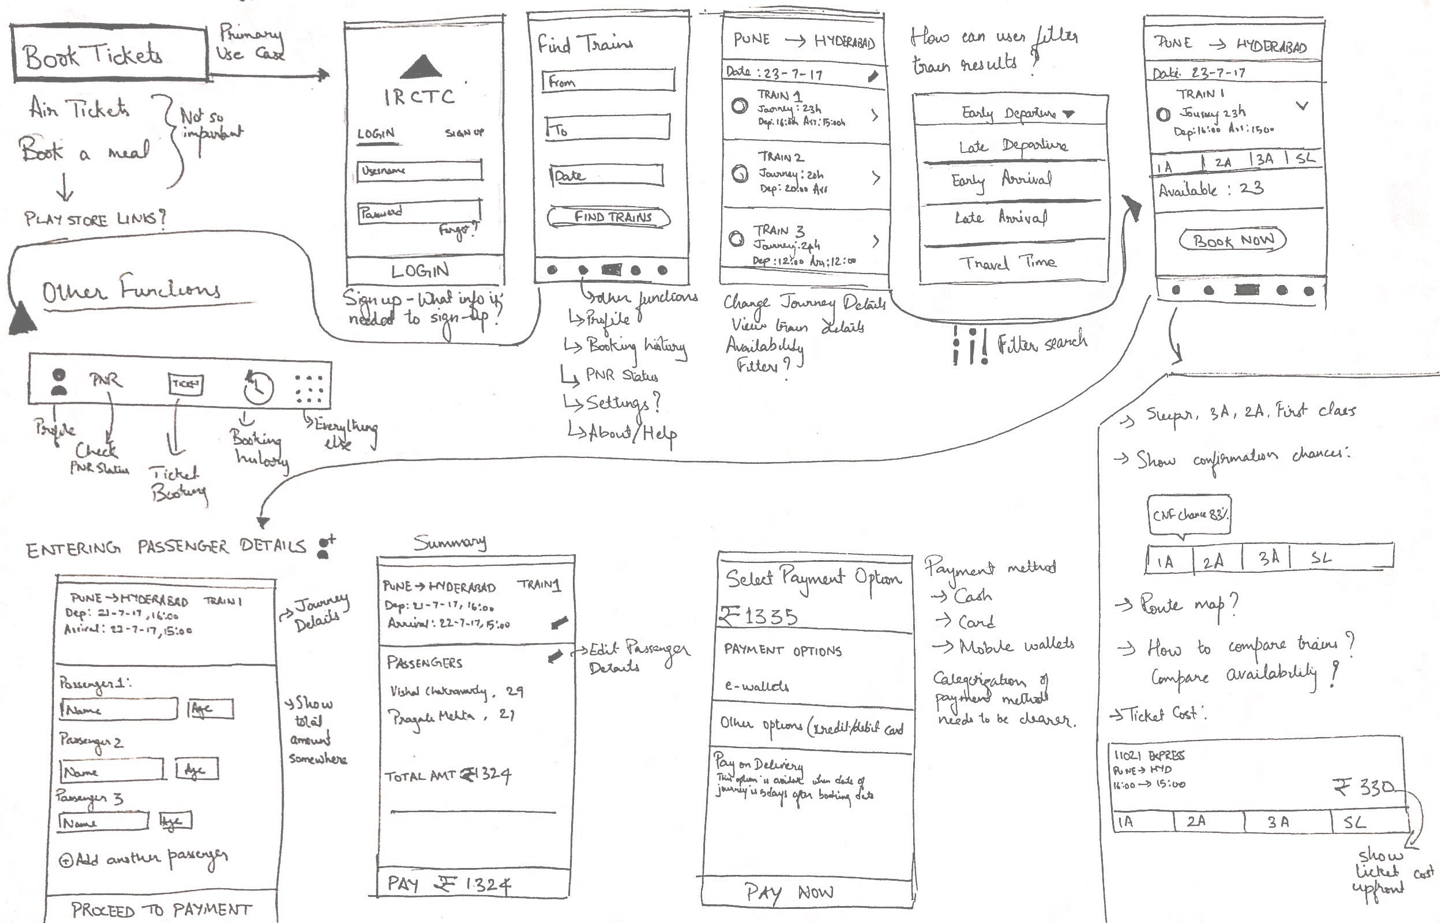 Book Tickets
Primary
Use Case
Air Tickets
Book a meal
Not so
important
PLAY STORE LINKS?
IRCTC
LOGIN SIGN UP
Username
Password
Forgot?
LOGIN
Sign up - What info is
needed to sign-up?
Find Trains
From
To
Date
FIND TRAINS
other functions
Profile
Booking history
PNR Status
Settings?
About/Help
PUNE → HYDERABAD
Date: 23-7-17
TRAIN 1
Journey: 23h
Dep: 16:00h Arr: 15:00h
TRAIN 2
Journey: 20h
Dep: 20:00 Arr
TRAIN 3
Journey: 24h
Dep: 12:00 Arr: 12:00
Change Journey Details
View train details
Availability
Filters?
How can user filter
train results?
Early Departure
Late Departure
Early Arrival
Late Arrival
Travel Time
Filter search
PUNE → HYDERABAD
Date: 23-7-17
TRAIN 1
Journey 23h
Dep: 16:00 Arr: 1500
1A 2A 3A SL
Available: 23
BOOK NOW
Other Functions
PNR
TICKET
Profile
Check
PNR Status
Ticket
Booking
Booking
history
Everything
else
→ Sleeper, 3A, 2A, First class
→ Show confirmation chances:
CNF chance 83%
1A 2A 3A SL
→ Route map?
→ How to compare trains?
Compare availability?
→ Ticket Cost:
11021 EXPRESS
PUNE → HYD
16:00 → 15:00
₹ 330
1A 2A 3A SL
show
ticket cost
upfront
ENTERING PASSENGER DETAILS
PUNE → HYDERABAD TRAIN 1
Dep: 21-7-17, 16:00
Arrival: 22-7-17, 15:00
→ Journey
Details
Passenger 1:
Name Age
Passenger 2
Name Age
Passenger 3
Name Age
Add another passenger
PROCEED TO PAYMENT
→ Show
total
amount
somewhere
Summary
PUNE → HYDERABAD TRAIN 1
Dep: 21-7-17, 16:00
Arrival: 22-7-17, 15:00
PASSENGERS
Vishal Chakravarty, 29
Pragati Mehta, 27
TOTAL AMT ₹1324
PAY ₹ 1324
→ Edit Passenger
Details
Select Payment Option
₹ 1335
PAYMENT OPTIONS
e-wallets
Other options (credit/debit card
Pay on Delivery
This option is available when date of
journey is 5 days after booking date
PAY NOW
Payment method
→ Cash
→ Card
→ Mobile wallets
Categorization of
payment method
needs to be clearer.